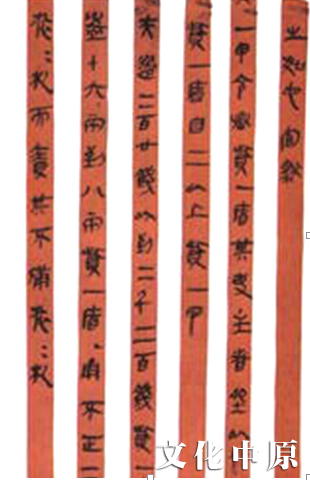 之如它官然
一甲令丞貲一盾其吏主者坐以
貲一盾自二以上貲一甲
夫過二百廿錢以到二千二百錢貲一
盈十六兩到八兩貲一盾甬不正
而責其不備
文化中原